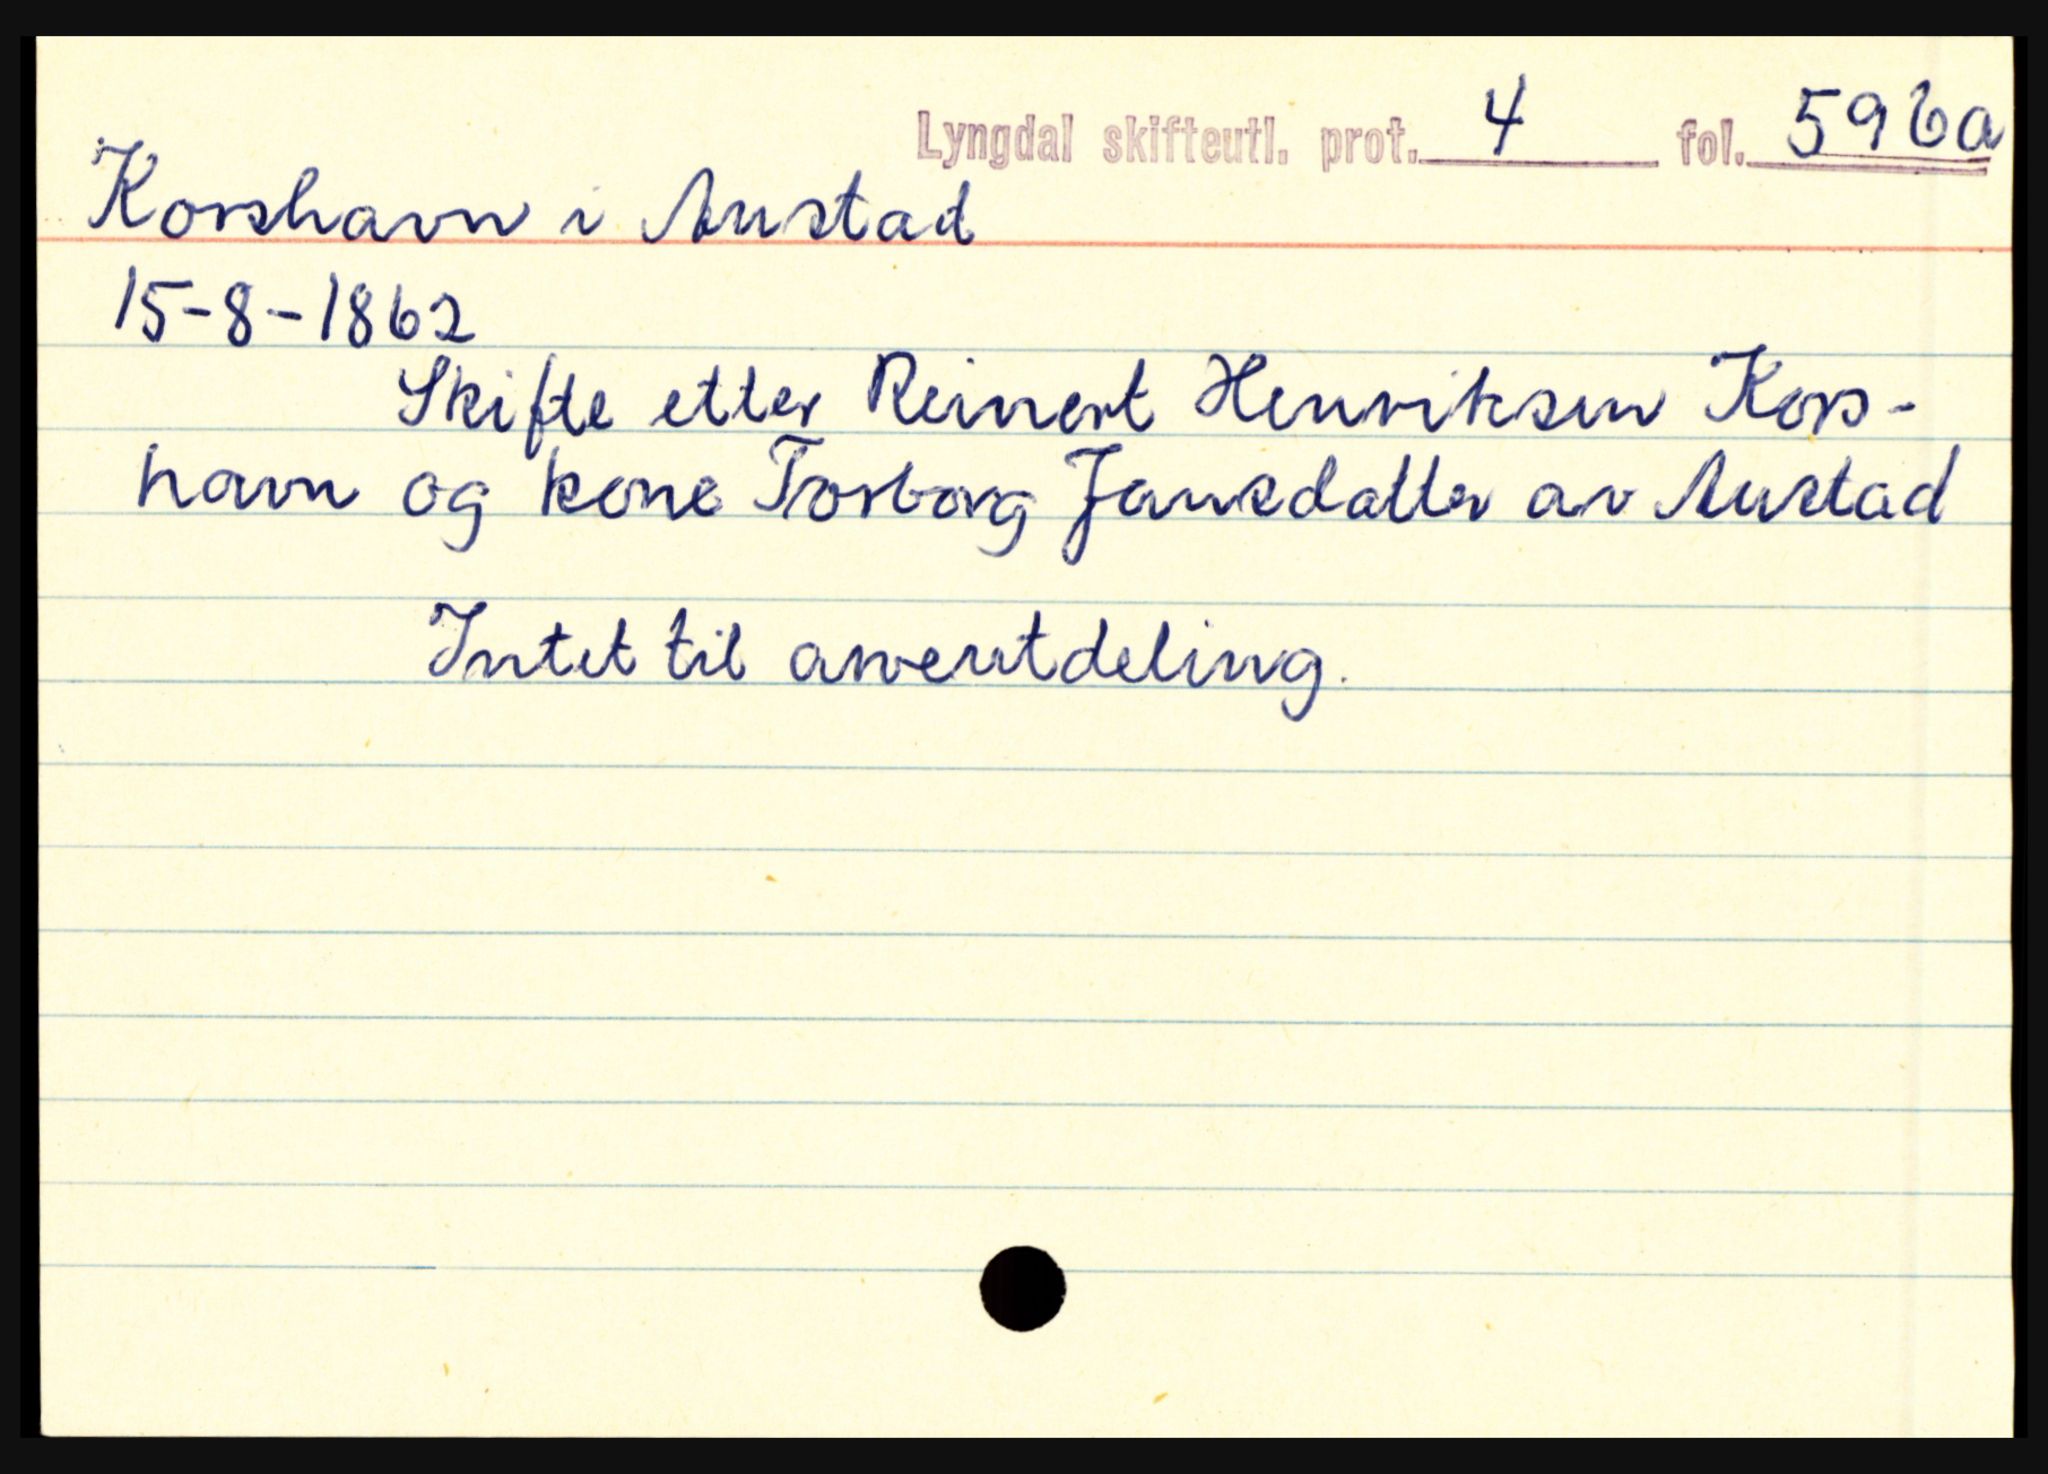 Lyngdal skifteutl. prot. 4 fol. 596a
Korshavn i Austad
15-8-1862
Skifte etter Reinert Henriksen Kors-
havn og kone Torborg Jansdatter av Austad
Intet til arveutdeling.